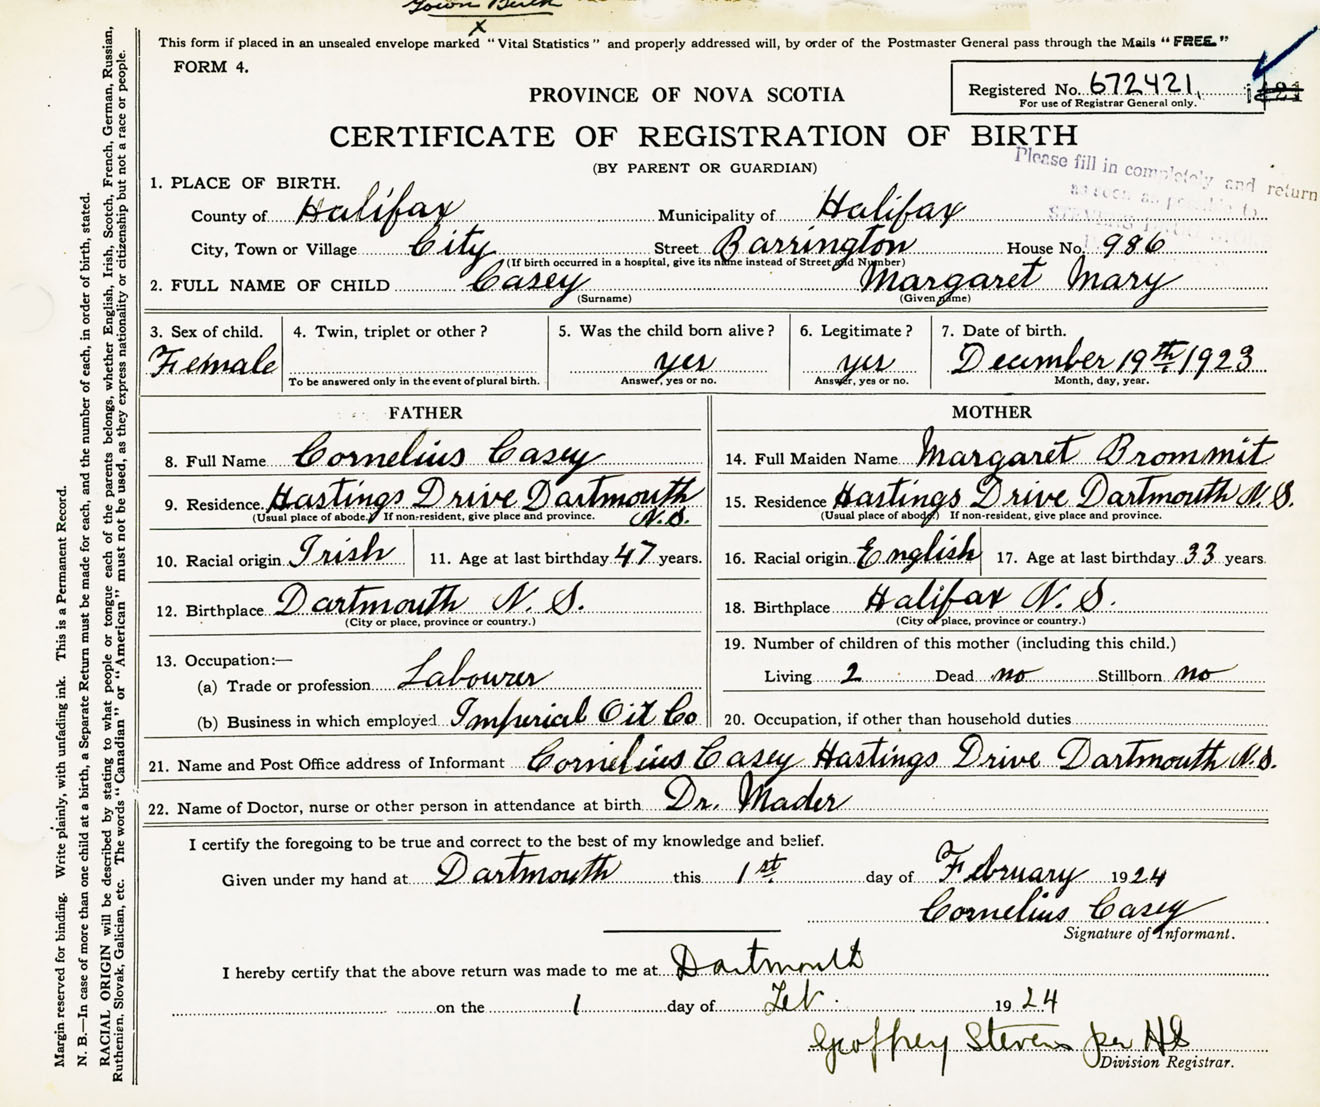 Town Birth
X
This form if placed in an unsealed envelope marked "Vital Statistics" and properly addressed will, by order of the Postmaster General pass through the Mails "FREE."
FORM 4.
Registered No. 672421
For use of Registrar General only.
PROVINCE OF NOVA SCOTIA
CERTIFICATE OF REGISTRATION OF BIRTH
(BY PARENT OR GUARDIAN)
Please fill in completely and return
as soon as possible to
1. PLACE OF BIRTH.
County of Halifax Municipality of Halifax
City, Town or Village City Street Barrington House No. 986
(If birth occurred in a hospital, give its name instead of Street and Number)
2. FULL NAME OF CHILD Casey Margaret Mary
(Surname) (Given name)
3. Sex of child. 4. Twin, triplet or other? 5. Was the child born alive? 6. Legitimate? 7. Date of birth.
Female yes yes December 19th 1923
To be answered only in the event of plural birth. Answer, yes or no. Answer, yes or no. Month, day, year.
FATHER MOTHER
8. Full Name Cornelius Casey 14. Full Maiden Name Margaret Brommit
9. Residence. Hastings Drive Dartmouth N.S. 15. Residence Hastings Drive Dartmouth N.S.
(Usual place of abode.) If non-resident, give place and province. (Usual place of abode) If non-resident, give place and province.
10. Racial origin Irish 11. Age at last birthday 47 years. 16. Racial origin English 17. Age at last birthday 33 years.
12. Birthplace Dartmouth N.S. 18. Birthplace Halifax N.S.
(City or place, province or country.) (City or place, province or country.)
13. Occupation:— 19. Number of children of this mother (including this child.)
(a) Trade or profession Labourer Living 2 Dead no Stillborn no
(b) Business in which employed Imperial Oil Co 20. Occupation, if other than household duties
21. Name and Post Office address of Informant Cornelius Casey Hastings Drive Dartmouth N.S.
22. Name of Doctor, nurse or other person in attendance at birth Dr. Mader
I certify the foregoing to be true and correct to the best of my knowledge and belief.
Given under my hand at Dartmouth this 1st day of February 1924
Cornelius Casey
Signature of Informant.
I hereby certify that the above return was made to me at Dartmouth
on the 1 day of Feb. 1924
Geoffrey Stevens per HS
Division Registrar.
Margin reserved for binding. Write plainly, with unfading ink. This is a Permanent Record.
N. B.—In case of more than one child at a birth, a Separate Return must be made for each, and the number of each, in order of birth, stated.
RACIAL ORIGIN will be described by stating to what people or tongue each of the parents belongs, whether English, Irish, Scotch, French, German, Russian,
Ruthenien, Slovak, Galician, etc. The words "Canadian" or "American" must not be used, as they express nationality or citizenship but not a race or people.